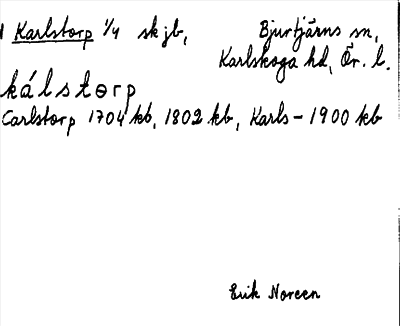 1 Karlstorp 1/4 sk jb, Bjurtjärns sn,
Karlskoga hd, Ör. l.
kálstɵrp
Carlstorp 1704 kb, 1802 kb, Karls- 1900 kb
Erik Noreen